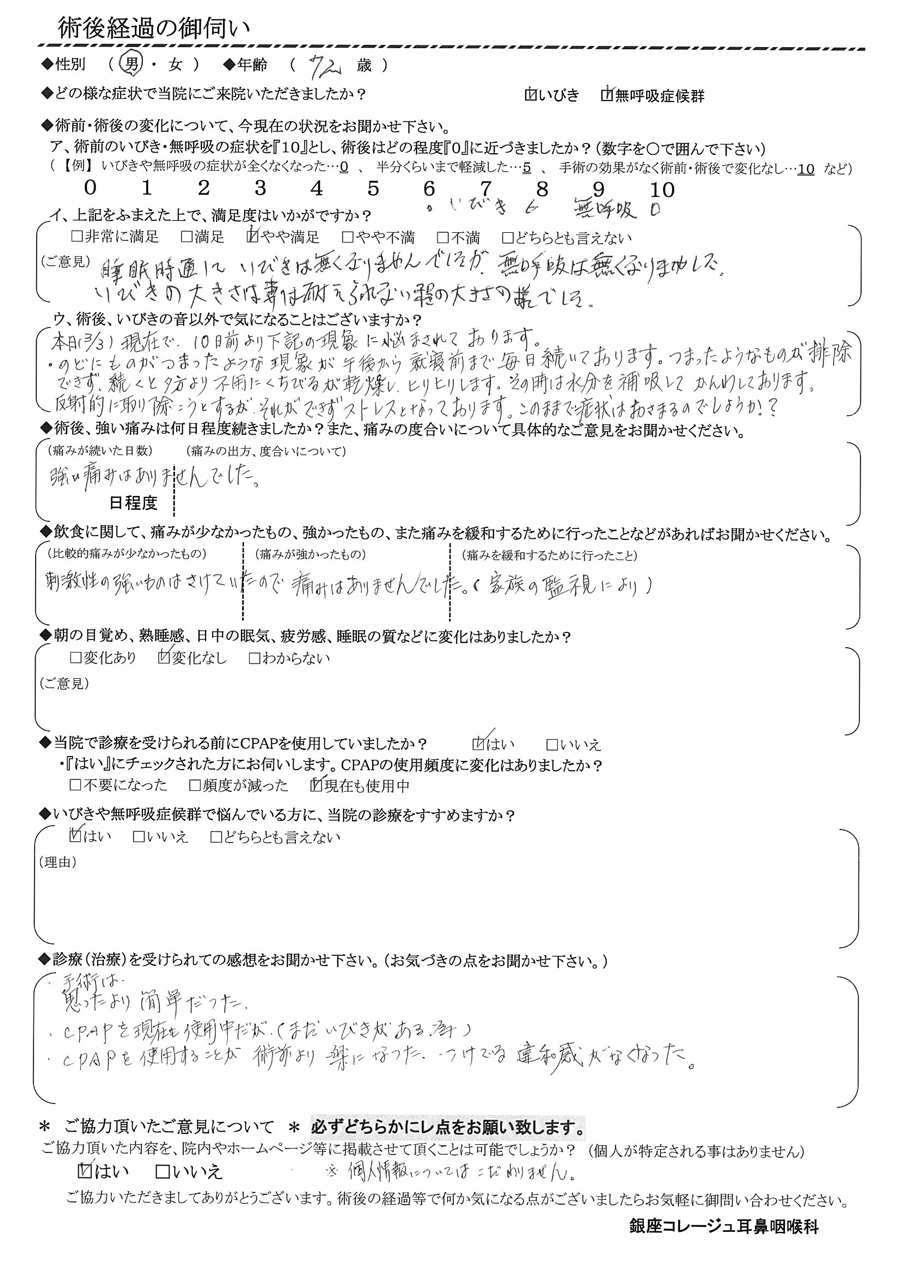 術後経過の御伺い
◆性別 （ 男 ・ 女 ） ◆年齢 （ 72 歳 ）
◆どの様な症状で当院にご来院いただきましたか？ ☑いびき ☑無呼吸症候群
◆術前・術後の変化について、今現在の状況をお聞かせ下さい。
ア、術前のいびき・無呼吸の症状を『10』とし、術後はどの程度『0』に近づきましたか？（数字を○で囲んで下さい）
（ 【例】 いびきや無呼吸の症状が全くなくなった…0 、 半分くらいまで軽減した…5 、 手術の効果がなく術前・術後で変化なし…10 など）
0 1 2 3 4 5 6 7 8 9 10
。いびき 6 無呼吸 0
イ、上記をふまえた上で、満足度はいかがですか？
□非常に満足 □満足 ☑やや満足 □やや不満 □不満 □どちらとも言えない
（ご意見） 睡眠時通して いびきは無くなりませんでしたが、無呼吸は無くなりました。
いびきの大きさは妻は耐えられない程の大きさの様でした。
ウ、術後、いびきの音以外で気になることはございますか？
本日(3/3) 現在で、10日前より下記の現象に悩まされております。
・のどにものがつまったような現象が午後から就寝前まで毎日続いております。つまったようなものが排除
できず、続くと夕方より不用にくちびるが乾燥し、ヒリヒリします。その時は水分を補吸して かんわしております。
反射的に取り除こうとするが、それができずストレスとなっております。このままで症状はおさまるのでしょうか？？
◆術後、強い痛みは何日程度続きましたか？また、痛みの度合いについて具体的なご意見をお聞かせください。
（痛みが続いた日数） （痛みの出方、度合いについて）
強い痛みはありませんでした。
日程度
◆飲食に関して、痛みが少なかったもの、強かったもの、また痛みを緩和するために行ったことなどがあればお聞かせください。
（比較的痛みが少なかったもの） （痛みが強かったもの） （痛みを緩和するために行ったこと）
刺激性の強いものはさけていたので 痛みはありませんでした。（家族の監視により）
◆朝の目覚め、熟睡感、日中の眠気、疲労感、睡眠の質などに変化はありましたか？
□変化あり ☑変化なし □わからない
（ご意見）
◆当院で診療を受けられる前にCPAPを使用していましたか？ ☑はい □いいえ
・『はい』にチェックされた方にお伺いします。CPAPの使用頻度に変化はありましたか？
□不要になった □頻度が減った ☑現在も使用中
◆いびきや無呼吸症候群で悩んでいる方に、当院の診療をすすめますか？
☑はい □いいえ □どちらとも言えない
（理由）
◆診療（治療）を受けられての感想をお聞かせ下さい。（お気づきの点をお聞かせ下さい。）
・手術は、
思ったより簡単だった。
・CPAPを現在も使用中だが、（まだいびきがある為）
・CPAPを使用することが 術前より 楽になった、つけている 違和感がなくなった。
＊ ご協力頂いたご意見について ＊ 必ずどちらかにレ点をお願い致します。
ご協力頂いた内容を、院内やホームページ等に掲載させて頂くことは可能でしょうか？ （個人が特定される事はありません）
☑はい □いいえ ※ 個人情報についてはこだわりません。
ご協力いただきましてありがとうございます。術後の経過等で何か気になる点がございましたらお気軽に御問い合わせください。
銀座コレージュ耳鼻咽喉科